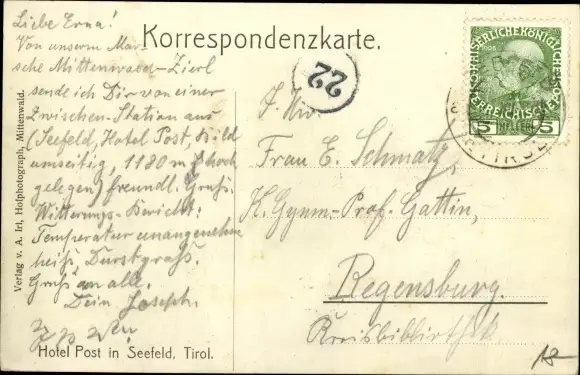 Liebe Erna!
Von unserm Mar-
sche Mittenwald-Zierl
sende ich Dir von einer
Zwischen-Station aus
(Seefeld, Hotel Post, Bild
umseitig, 1180 m hoch
gelegen) freundl. Gruß.
Witterungs-Bericht:
Temperatur unangenehm
heiß, Durst groß.
Gruß an alle.
Dein Joseph.
Hotel Post in Seefeld, Tirol.
Verlag v. A. Irl, Hofphotograph, Mittenwald.
Korrespondenzkarte.
22
KAISERLICHE KÖNIGLICHE
ÖSTERREICHISCHE
5 HELLER 5
Frau E. Schmatz,
K. Gymn.-Prof. Gattin,
Regensburg.
Kreisbibliothek.